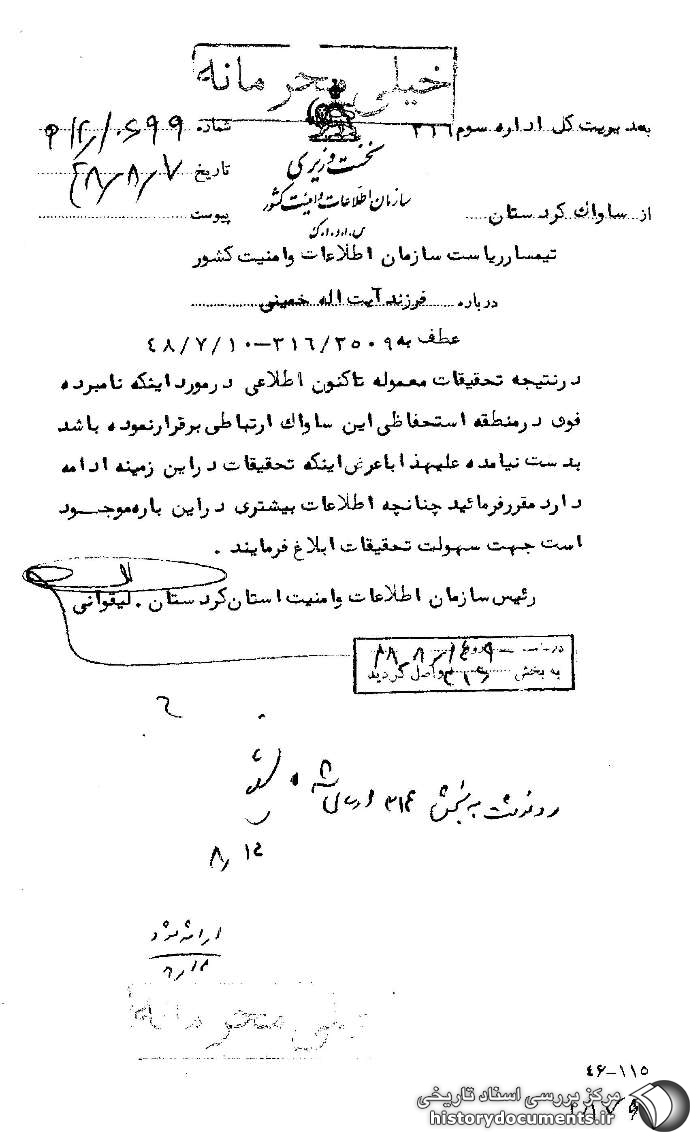 خیلی محرمانه
بمدیریت کل اداره سوم ۳۱۶
شماره
نخست وزیری
تاریخ ۴۸/۸/۷
سازمان اطلاعات و امنیت کشور
از ساواك کردستان
پیوست
س.ا.و.ا.ک
تیمسار ریاست سازمان اطلاعات و امنیت کشور
درباره فرزند آیت اله خمینی
عطف به ۳۱۶/۲۵۰۹-۴۸/۷/۱۰
در نتیجه تحقیقات معموله تاکنون اطلاعی در مورد اینکه نامبرده
فوق در منطقه استحفاظی این ساواك ارتباطی برقرار نموده باشد
بدست نیامده علیهذا با عرض اینکه تحقیقات در این زمینه ادامه
دارد مقرر فرمائید چنانچه اطلاعات بیشتری در این باره موجود
است جهت سهولت تحقیقات ابلاغ فرمایند .
رئیس سازمان اطلاعات و امنیت استان کردستان . لیقوانی
به بخش ۳۱۶ واصل گردید
رونوشت به بخش ۳۱۴
۸/۱۲
ارائه شود
۸/۱۲
خیلی محرمانه
۴۶-۱۱۵
مرکز بررسی اسناد تاریخی
historydocuments.ir